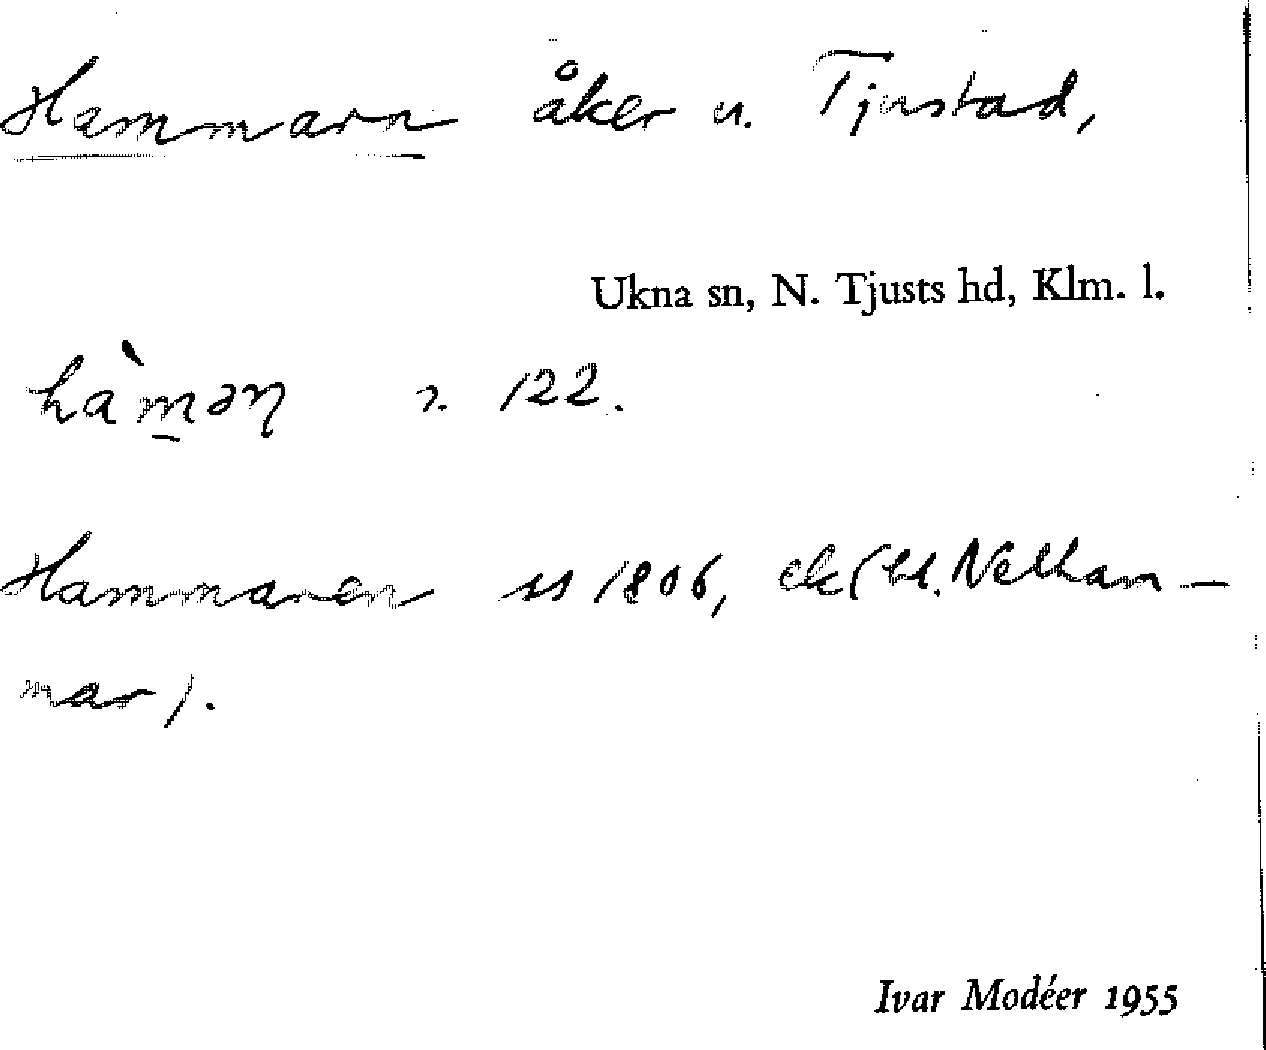 Hammarn åker u. Tjustad,
Ukna sn, N. Tjusts hd, Klm. l.
hàm̱əɳ 2. 122.
Hammaren ss 1806, ek (bl. Nelham-
mar).
Ivar Modéer 1955